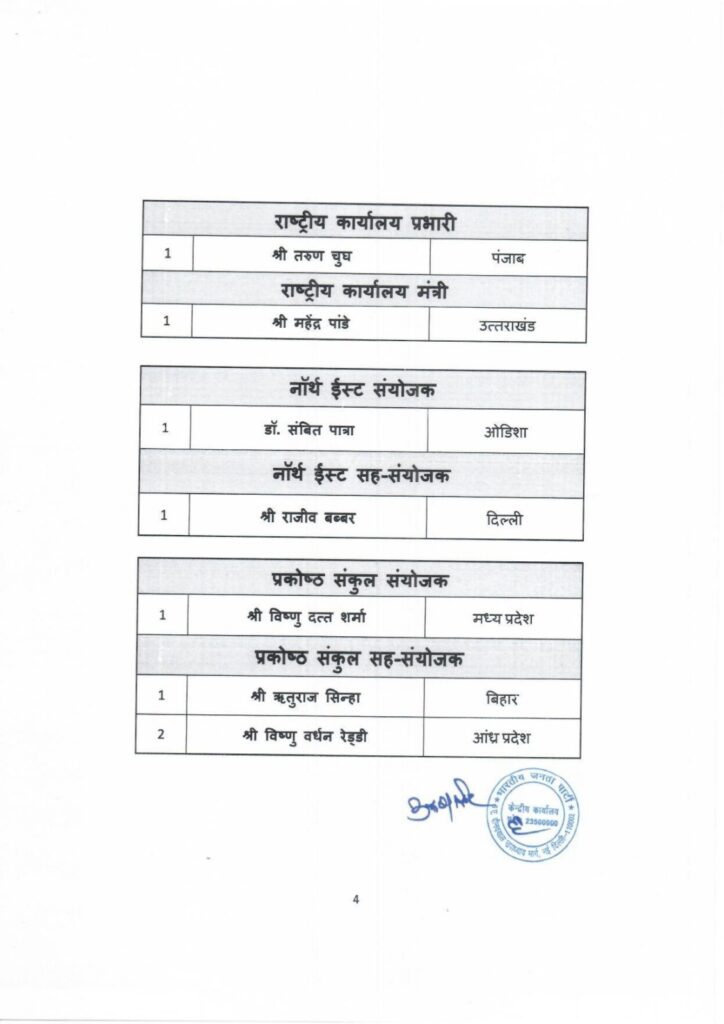 राष्ट्रीय कार्यालय प्रभारी
1 श्री तरुण चुघ पंजाब
राष्ट्रीय कार्यालय मंत्री
1 श्री महेंद्र पांडे उत्तराखंड
नॉर्थ ईस्ट संयोजक
1 डॉ. संबित पात्रा ओडिशा
नॉर्थ ईस्ट सह-संयोजक
1 श्री राजीव बब्बर दिल्ली
प्रकोष्ठ संकुल संयोजक
1 श्री विष्णु दत्त शर्मा मध्य प्रदेश
प्रकोष्ठ संकुल सह-संयोजक
1 श्री ऋतुराज सिन्हा बिहार
2 श्री विष्णु वर्धन रेड्डी आंध्र प्रदेश
भारतीय जनता पार्टी
केन्द्रीय कार्यालय
23500000
उपाध्याय मार्ग, नई दिल्ली-110002
4